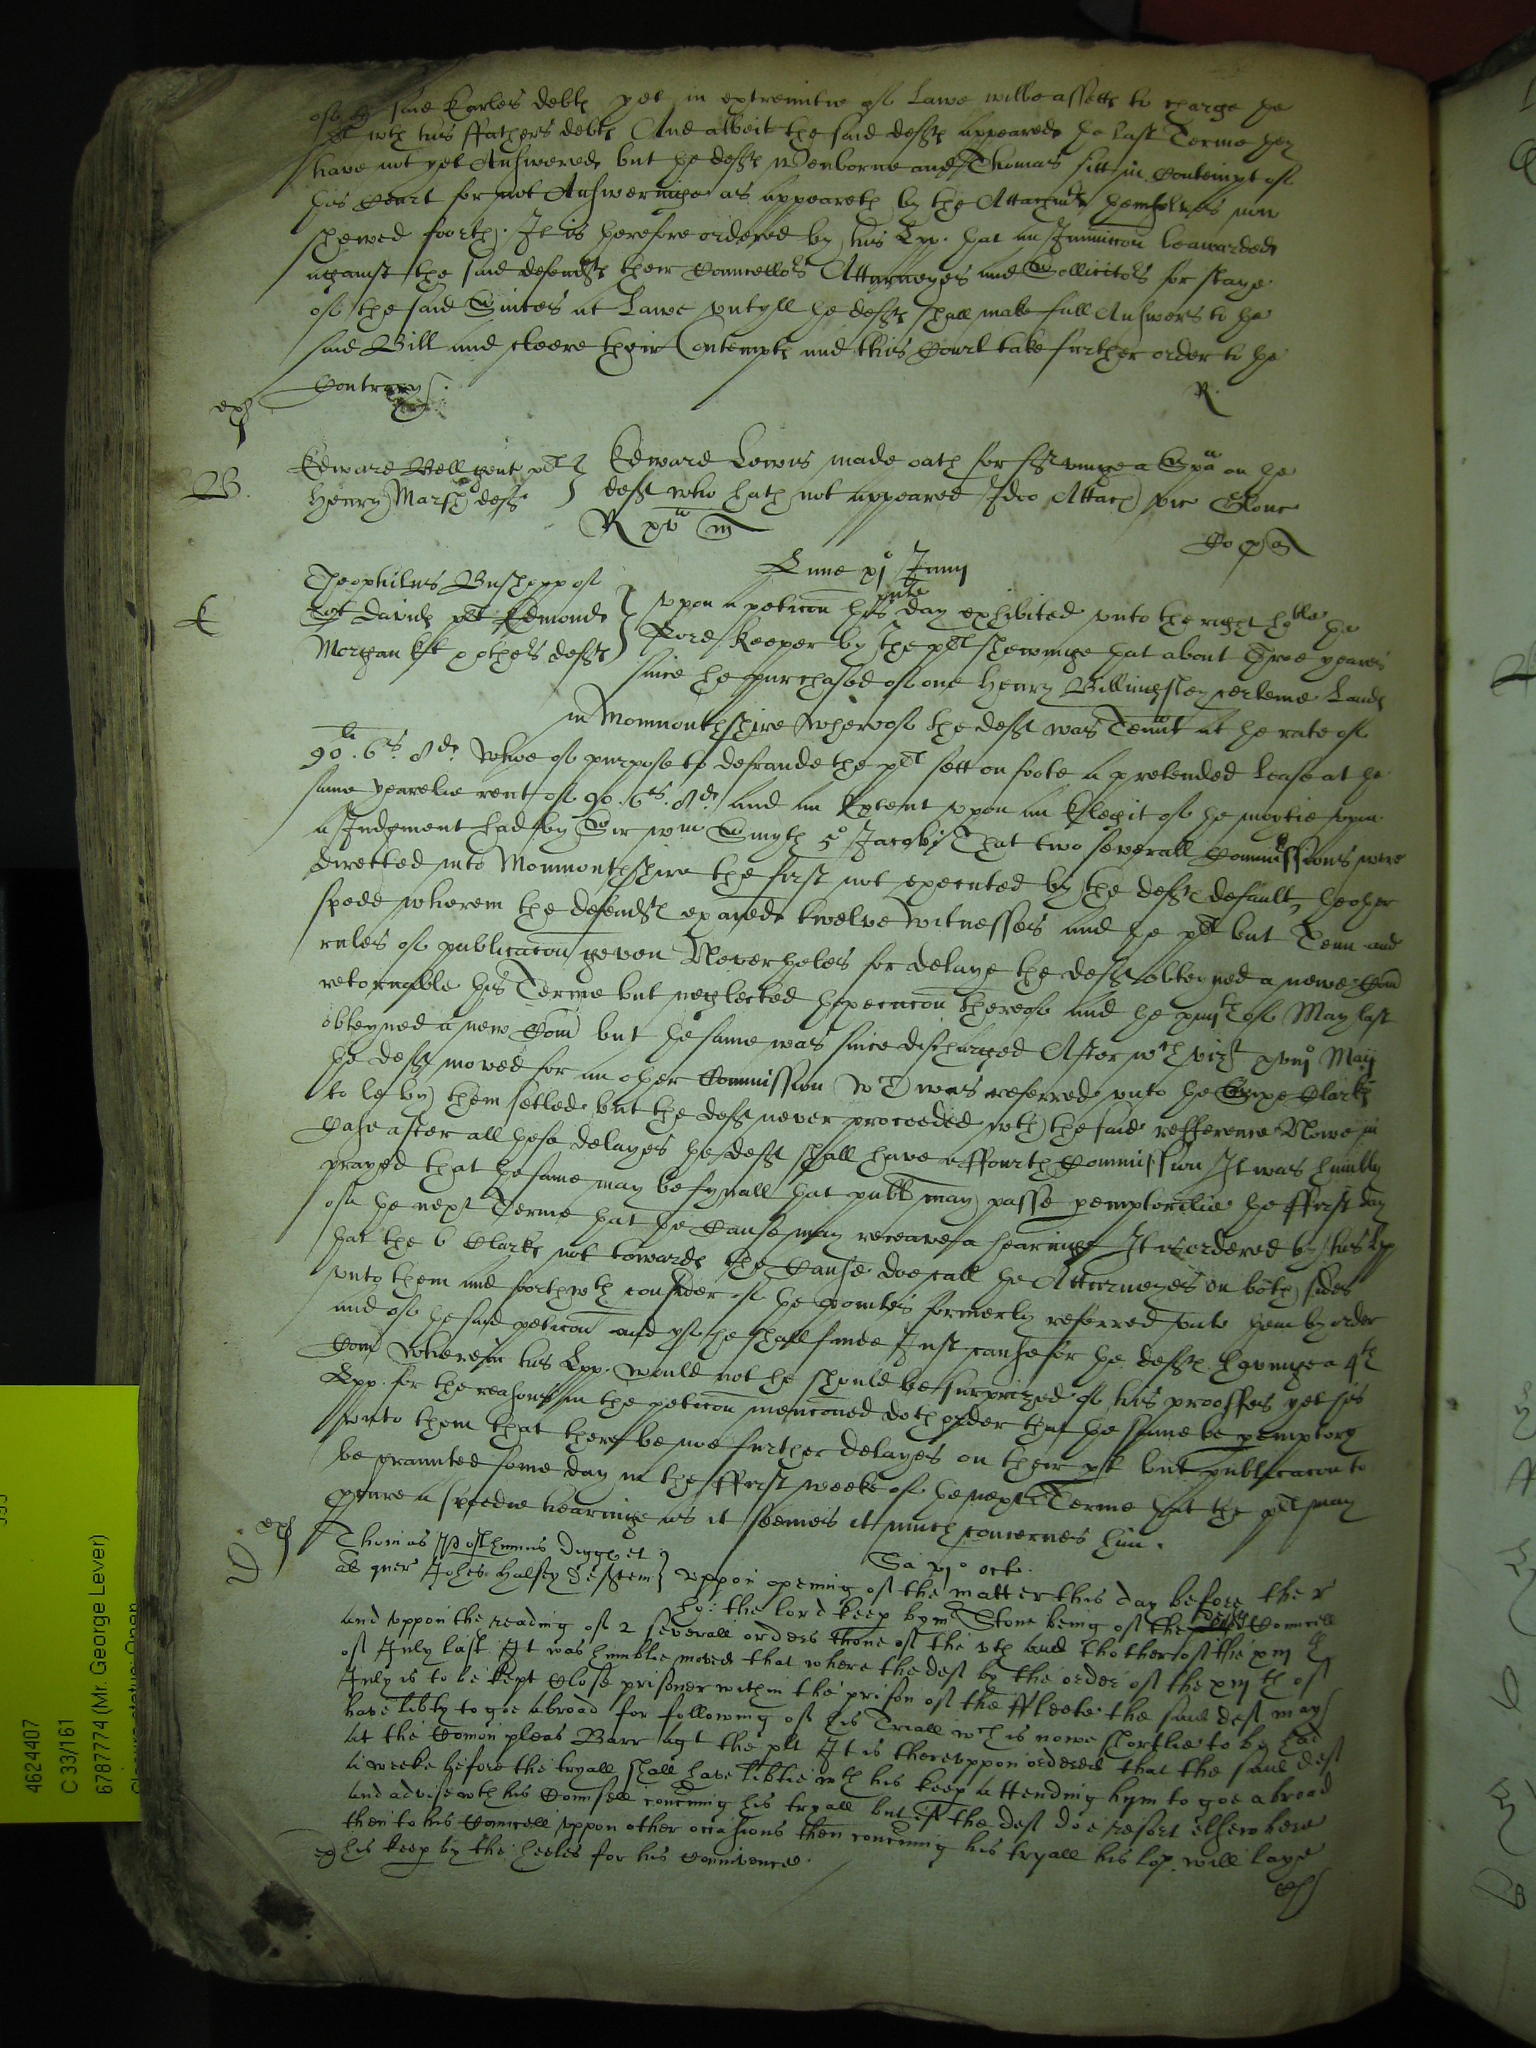 of the said Earles debts yet in extremitie of Lawe wilbe assetts to charge the
wth his ffathers debts And albeit the said defts appeared the last Terme they
have not yet Answered, but the defts and Thomas sitt in Contempt of
this Court for not Answeringe as appeareth by the Attachmts themselves now
shewed foorth. It is therefore ordered by his Lpp. that an Iniunccon be awarded
against the said defendts their Councellors Attorneyes and Sollicitors for staye
of the said Suites at Lawe untyll the defts shall make full Answers to the
said Bill and cleere their Contempts and this Court take further order to the
Contrary.
R.
ex
B.
Edward Bell gent plt
Henry Marsh deft
Edward Lewis made oath for servinge a Spa on the
deft who hath not appeared Ideo Attach vic Glouc
R xvu m
Lune xio Junij
E
Theophilus Busshopp of
St Davids plt Edmond
Morgan Esq & others defts
Upon a peticon this pnte day exhibited unto the right hoble the
Lord Keeper by the plt shewinge that about Three yeares
since he purchased of one Henry Billingsley certeine Lands
in Monmouthshire whereof the deft was Tennt at the rate of
90li. 6s. 8d. Whoe of purpose to defraude the plt sett on foote a pretended Lease at the
same yearelie rent of 90. 6s. 8d. and an Extent upon an Elegit of the moytie upon
a Judgment had by Sir Wm Smyth 5o Jacobi That two severall Commissions were
directed into Monmouthshire the first not executed by the defts default, the other
spedd wherein the defendt exaied twelve Witnesses and the plt but Tenn and
rules of publicacon geven Neverthelès for delaye the deft obteyned a newe Com
retornable this Terme but neglected thexecucon thereof and the xiiijth of May last
obteyned a new Com but the same was since discharged After wch vizt xviijo Maij
the deft moved for an other Commission wch was referred unto the Sixe Clarks
to be by them setled but the deft never proceeded wth the said refference Nowe in
Case after all these delayes the deft shall have a ffourth Commission It was humbly
prayed that the same may be fynall that publ may passe pemptorilie the ffirst day
of the next Terme that the Cause may receave a hearinge It is ordered by his Lpp
that the 6 Clarks not towards the Cause doe call the Atturneyes on both sides
unto them and forthwth consider of the pointes formerly referred unto them by order
and of the said peticon and yf the shall finde Just cause for the defts havinge a 4th
Com Wherein his Lpp. would not he should be surprized of his prooffes yet his
Lpp. for the reasons in the peticon menconed doth order that the same be pemptory
unto them that there be noe further delayes on their pt but publicacon to
be graunted some day in the ffirst weeke of the next Terme that the plt may
pcure a speedie hearinge as it seemes it much concernes him.
ex
D.
Thomas Posthumus Digges et
al quer Johes Halsey deften
Sa vjo octo.
Uppon opening of the matter this day before the r
ho: the lord keep by mr Stone being of the defts Councell
and uppon the reading of 2 severall orders thone of the vth and thother of the xiijth
of July last It was humblie moved that where the deft by the order of the xiijth of
July is to be kept close prisoner within the prison of the ffleete the said deft may
have libty to goe abroad for following of his Triall wch is nowe shortlie to be had
at the Comon pleas Barr agt the plt It is thereuppon ordered that the said deft
a weeke before the tryall shall have libtie wth his keep attending hym to goe abroad
and advise wth his Counsell concning his tryall but if the deft doe resort elsewhere
then to his Councell uppon other occasions then concning his tryall his lop. will laye
his keep by the heeles for his connivence.
4624407
C 33/161
67877774 (Mr. George Lever)